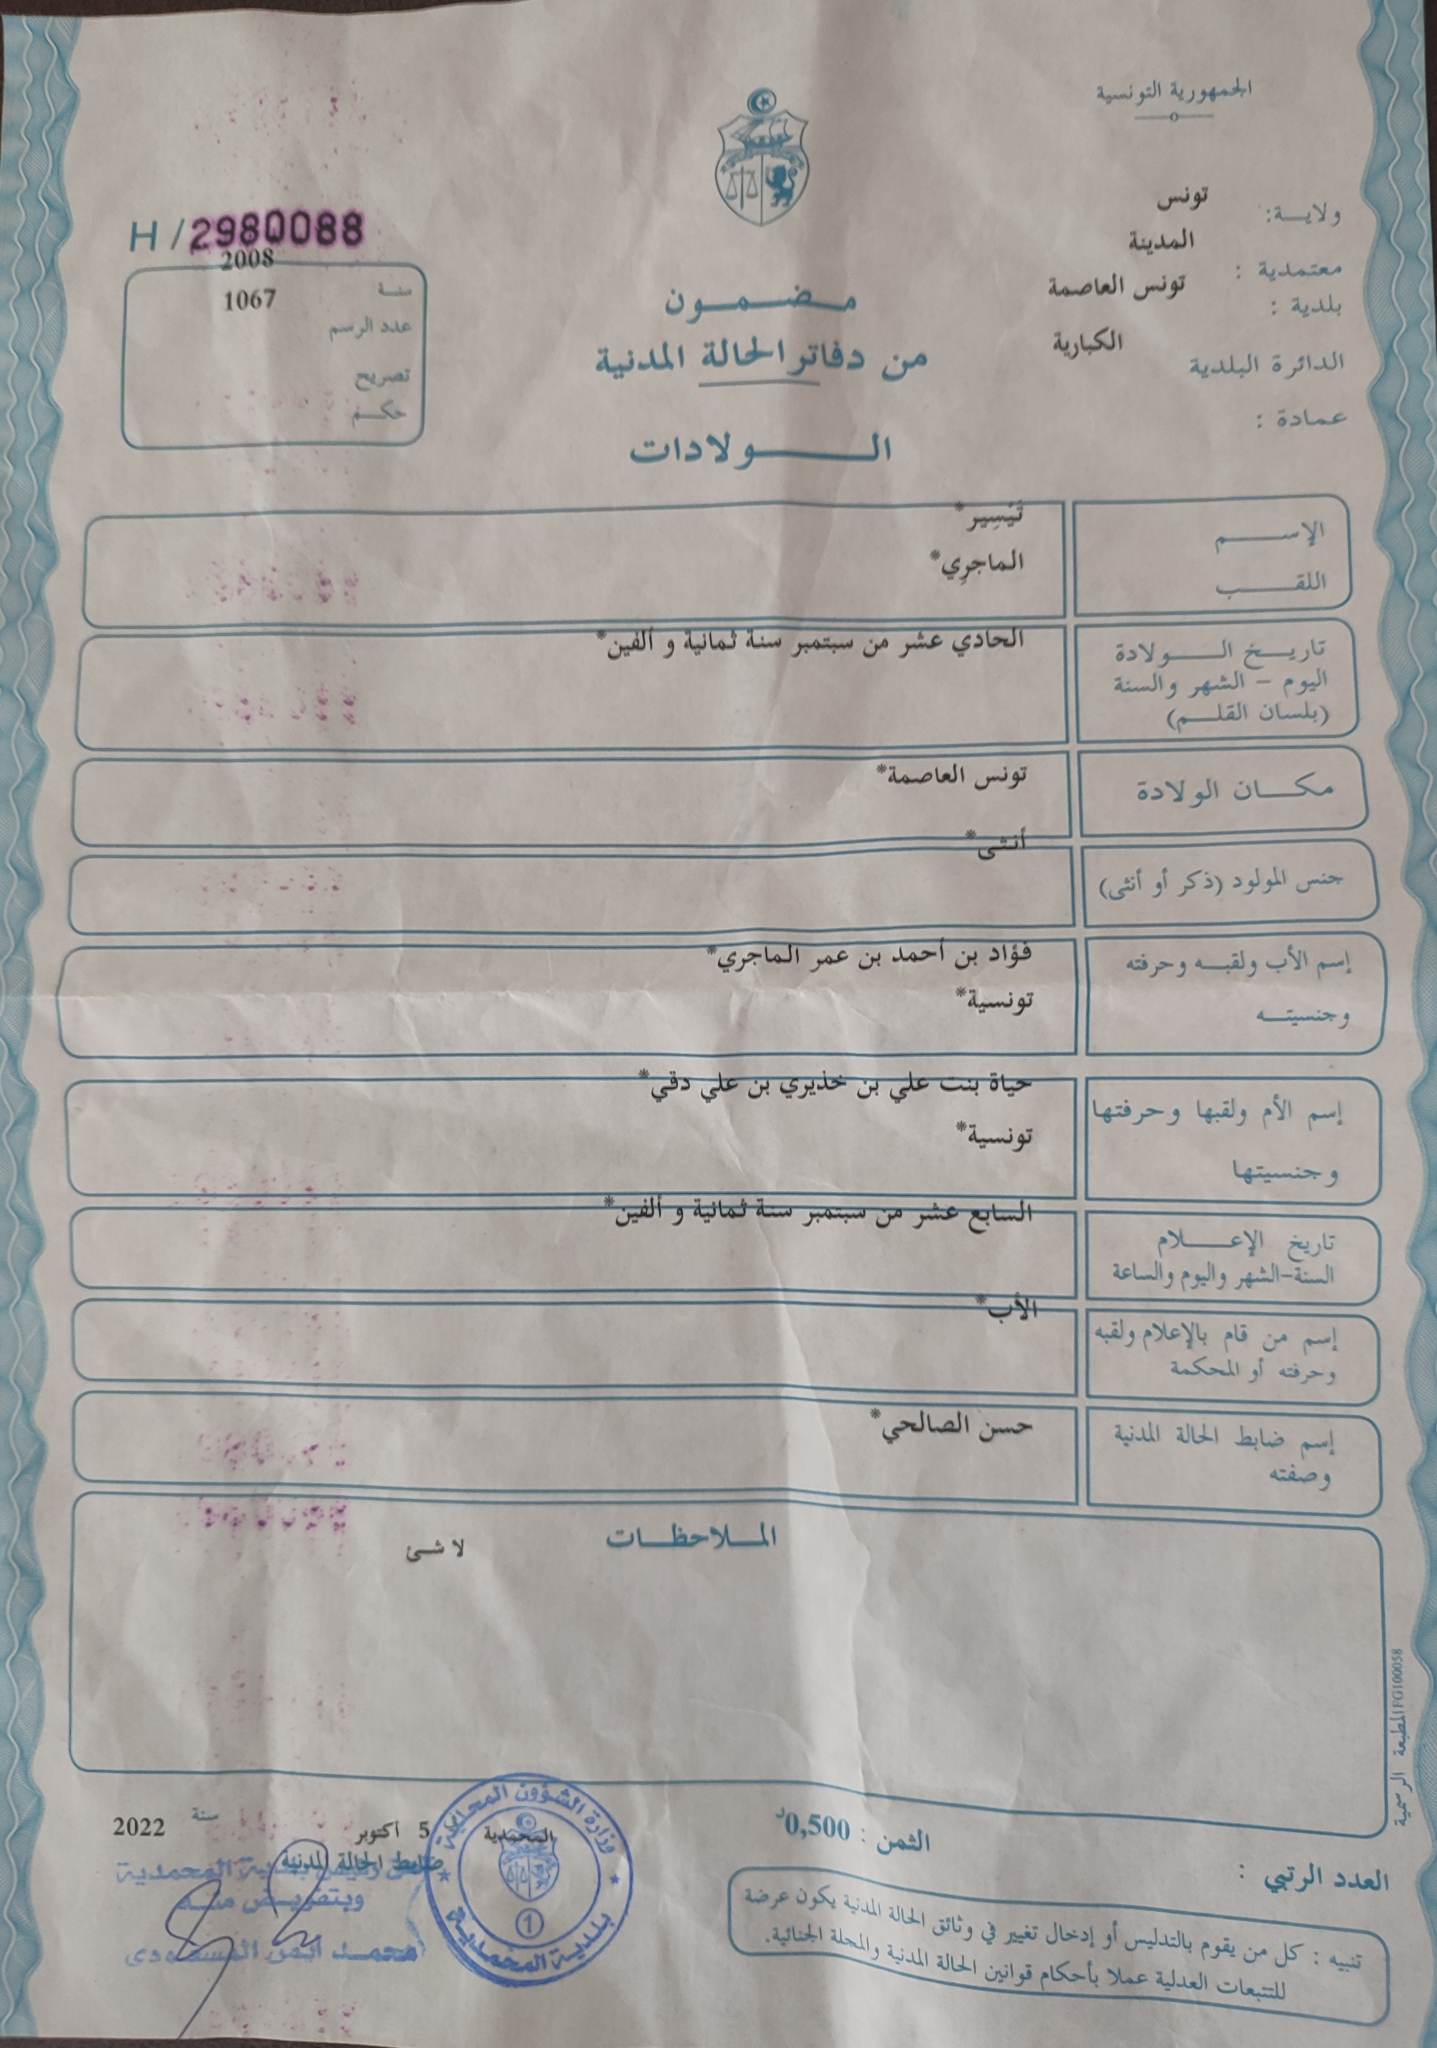 الجمهورية التونسية
ولايــة: تونس
معتمدية : المدينة
بلدية : تونس العاصمة
الدائرة البلدية الكبارية
عمادة :
H/2980088
سنة 2008
عدد الرسم 1067
تصريح
حكم
مضمون
من دفاتر الحالة المدنية
الولادات
الإسم تَيْسِير*
اللقب الماجرِي*
تاريخ الولادة الحادي عشر من سبتمبر سنة ثمانية و ألفين*
اليوم - الشهر والسنة
(بلسان القلم)
مكان الولادة تونس العاصمة*
جنس المولود (ذكر أو أنثى) أنثى*
إسم الأب ولقبه وحرفته فؤاد بن أحمد بن عمر الماجري*
وجنسيته تونسية*
إسم الأم ولقبها وحرفتها حياة بنت علي بن خذيري بن علي دقي*
وجنسيتها تونسية*
تاريخ الإعلام السابع عشر من سبتمبر سنة ثمانية و ألفين*
السنة-الشهر واليوم والساعة
إسم من قام بالإعلام ولقبه الأب*
وحرفته أو المحكمة
إسم ضابط الحالة المدنية حسن الصالحي*
وصفته
الملاحظات
لا شئ
المطبعة الرسمية FG100058
الثمن : 0,500د
العدد الرتبي :
تنبيه : كل من يقوم بالتدليس أو إدخال تغيير في وثائق الحالة المدنية يكون عرضة
للتتبعات العدلية عملا بأحكام قوانين الحالة المدنية والمجلة الجنائية.
المحمدية 5 أكتوبر سنة 2022
ضابط الحالة المدنية
رئيس بلدية المحمدية
وبتفويض منه
محمد أيمن المسعودي
وزارة الشؤون المحلية
1
بلدية المحمدية